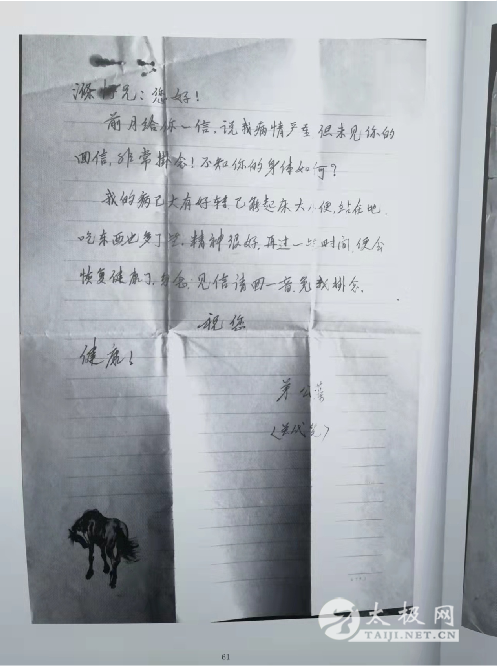 兄：您好！
前月给你一信，说我病情严重但未见你的
回信，非常掛念！不知你的身体如何？
我的病已大有好转已能起床大小便，站在地
吃东西也多了些，精神很好，再过一些时间，便会
恢复健康了，勿念，见信请回一音，免我掛念。
祝您
健康！
弟公
61
太极网
TAIJI.NET.CN